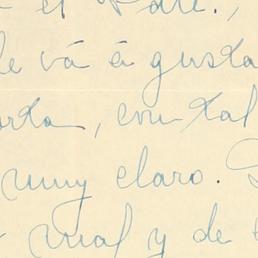 el Pari.,
le vá á gusta
orta, con tal
muy claro.
mal y de